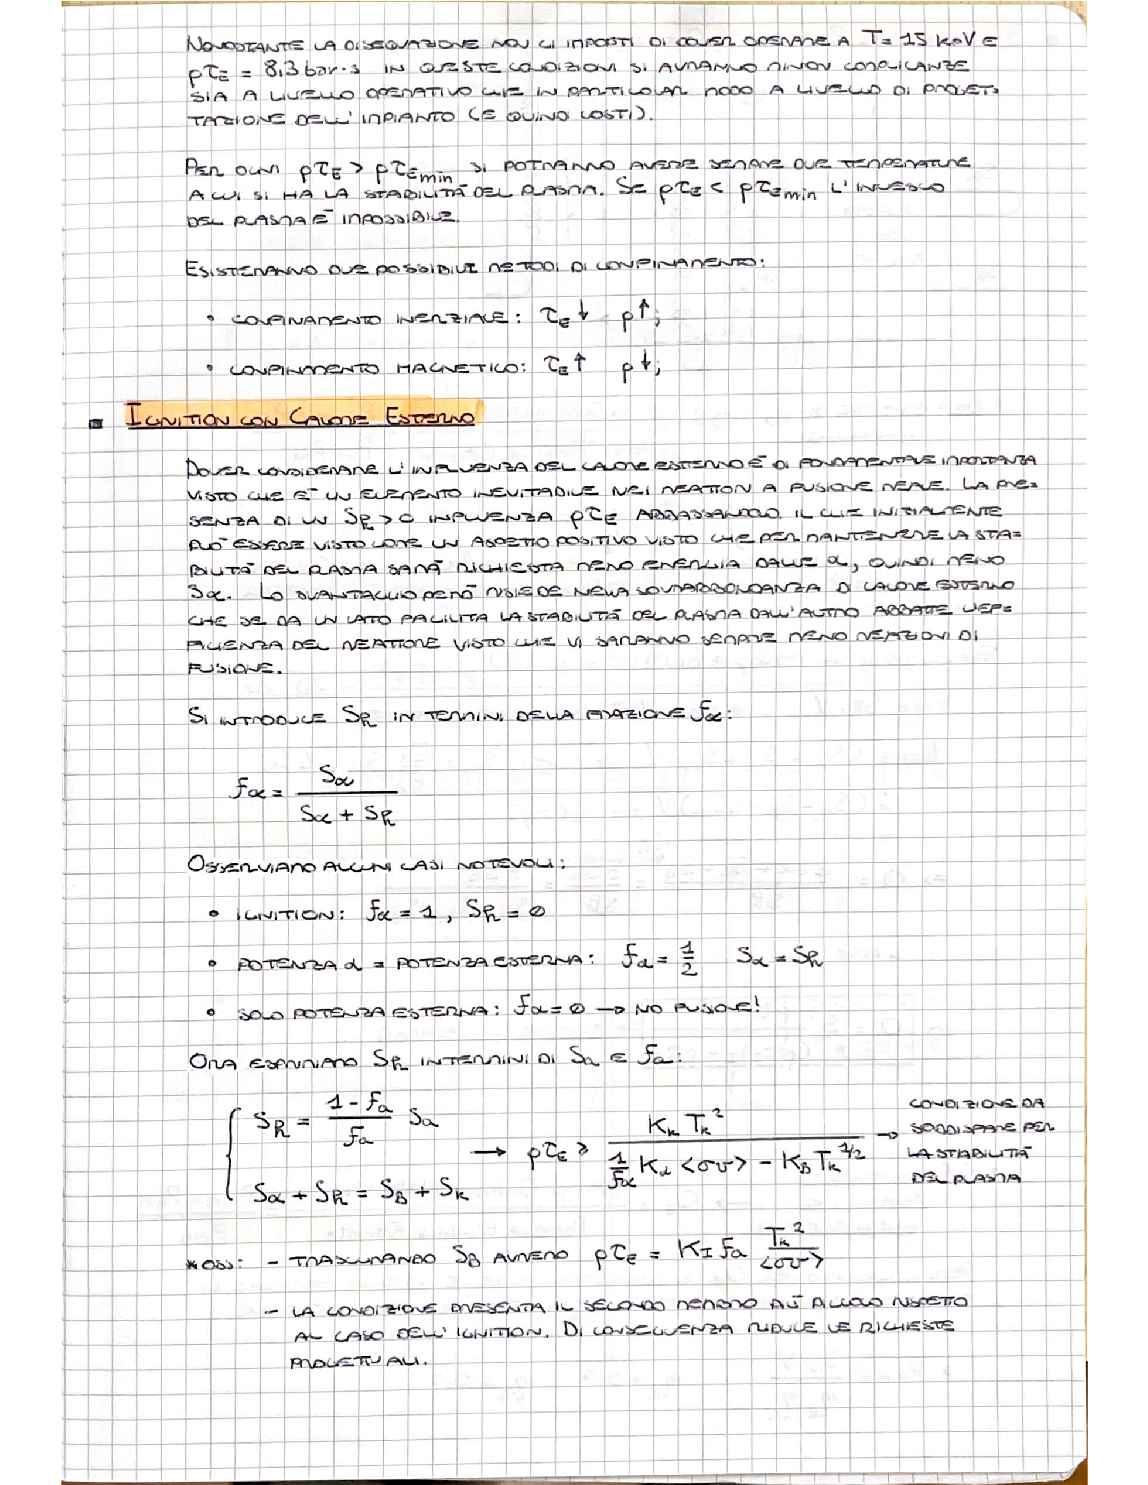 NONOSTANTE LA DISEQUAZIONE NON CI IMPOSTI DI DOVER OPERARE A T = 15 KeV E
pτE = 8,3 bar·s IN QUESTE CONDIZIONI SI AVRANNO MINORI COMPLICANZE
SIA A LIVELLO OPERATIVO CHE IN PARTICOLAR MODO A LIVELLO DI PROGET-
TAZIONE DELL'IMPIANTO (E QUINDI COSTI).
PER OGNI pτE > pτEmin SI POTRANNO AVERE SEMPRE DUE TEMPERATURE
A CUI SI HA LA STABILITÀ DEL PLASMA. SE pτE < pτEmin L'INNESCO
DEL PLASMA È IMPOSSIBILE.
ESISTERANNO DUE POSSIBILI METODI DI CONFINAMENTO:
• CONFINAMENTO INERZIALE: τE ↓ p ↑;
• CONFINAMENTO MAGNETICO: τE ↑ p ↓;
▪ IGNITION CON CALORE ESTERNO
DOVER CONSIDERARE L'INFLUENZA DEL CALORE ESTERNO È DI FONDAMENTALE IMPORTANZA
VISTO CHE È UN ELEMENTO INEVITABILE NEI REATTORI A FUSIONE REALE. LA PRE-
SENZA DI UN Sh > 0 INFLUENZA pτE ABBASSANDOLO IL CHE INIZIALMENTE
PUÒ ESSERE VISTO COME UN ASPETTO POSITIVO VISTO CHE PER MANTENERE LA STA-
BILITÀ DEL PLASMA SARÀ RICHIESTA MENO ENERGIA DALLE α, QUINDI MENO
Sα. LO SVANTAGGIO PERÒ RISIEDE NELLA SOVRABBONDANZA DI CALORE ESTERNO
CHE SE DA UN LATO FACILITA LA STABILITÀ DEL PLASMA DALL'ALTRO ABBATTE L'EFF-
ICIENZA DEL REATTORE VISTO CHE VI SARANNO SEMPRE MENO REAZIONI DI
FUSIONE.
SI INTRODUCE Sh IN TERMINI DELLA FRAZIONE fα:
fα = Sα / (Sα + Sh)
OSSERVIAMO ALCUNI CASI NOTEVOLI:
• IGNITION: fα = 1, Sh = 0
• POTENZA α = POTENZA ESTERNA: fα = 1/2 Sα = Sh
• SOLO POTENZA ESTERNA: fα = 0 → NO FUSIONE!
ORA ESPRIMIAMO Sh IN TERMINI DI Sα E fα:
{ Sh = (1 - fα)/fα Sα
Sα + Sh = SB + Sk
→ pτE ≥ Kk Tk² / (1/fα Kα <σv> - KB Tk^1/2) →
CONDIZIONE DA
SODDISFARE PER
LA STABILITÀ
DEL PLASMA
* OSS: - TRASCURANDO SB AVREMO pτE = KI fα Tk² / <σv>
- LA CONDIZIONE PRESENTA IL SECONDO MEMBRO PIÙ PICCOLO RISPETTO
AL CASO DELL'IGNITION. DI CONSEGUENZA RIDUCE LE RICHIESTE
PROGETTUALI.